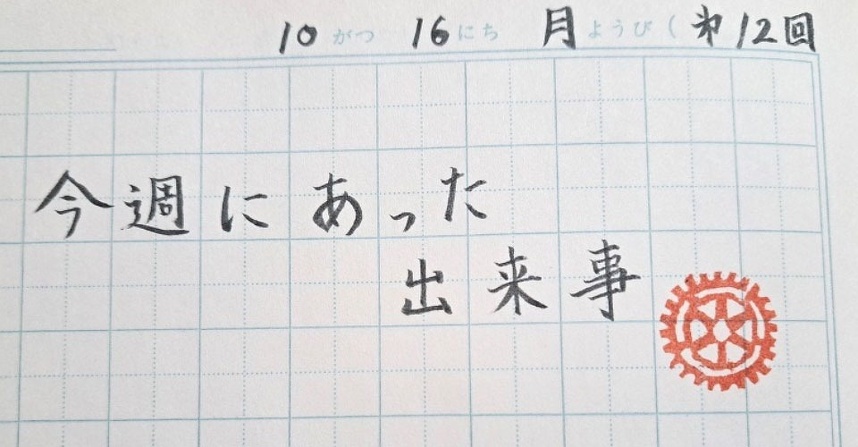 10 がつ 16 にち 月 ようび ( 㐧12回
今週にあった
出来事